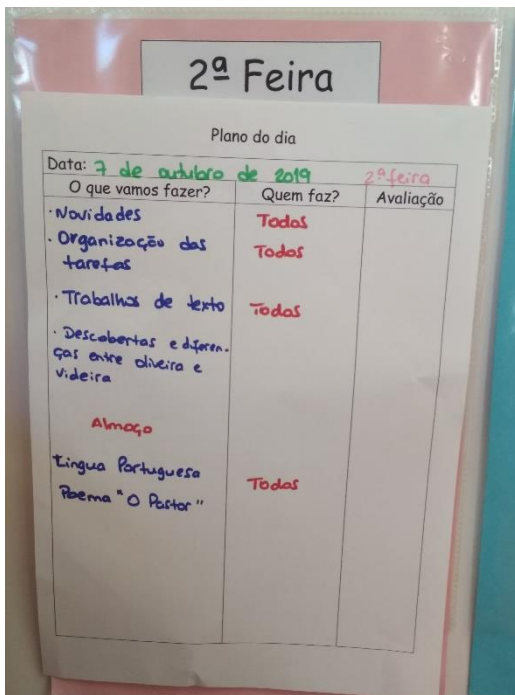 2ª Feira
Plano do dia
Data: 7 de outubro de 2019 2ª feira
O que vamos fazer? Quem faz? Avaliação
· Novidades Todos
· Organização das Todos
tarefas
· Trabalhos de texto Todos
· Descobertas e diferen-
ças entre oliveira e
videira
Almoço
Língua Portuguesa
Poema "O Pastor" Todos